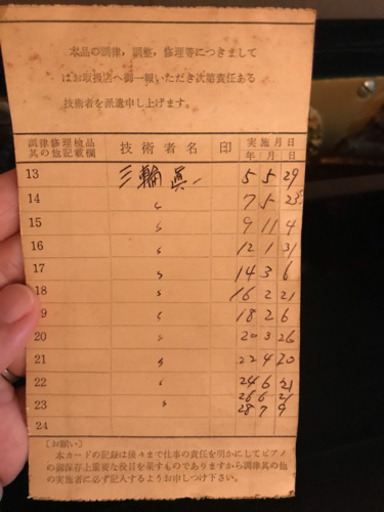 本品の調律，調整，修理等につきまして
はお取扱店へ御一報いただき次第責任ある
技術者を派遣申し上げます。
調律修理検品其の他記載欄 技術者名 印 実施月日 年月日
13 三輪眞一 5 5 29
14 〃 7 5 23
15 〃 9 11 4
16 〃 12 1 31
17 〃 14 3 6
18 〃 16 2 21
19 〃 18 2 6
20 〃 20 3 26
21 〃 22 4 20
22 〃 24 6 21
23 〃 26 6 21
28 7 9
24
〔お願い〕
本カードの記録は後々まで仕事の責任を明かにしてピアノ
の御保存上重要な役目を果すものでありますから調律其の他
の実施者に必ず記入するようお申しつけ下さい。